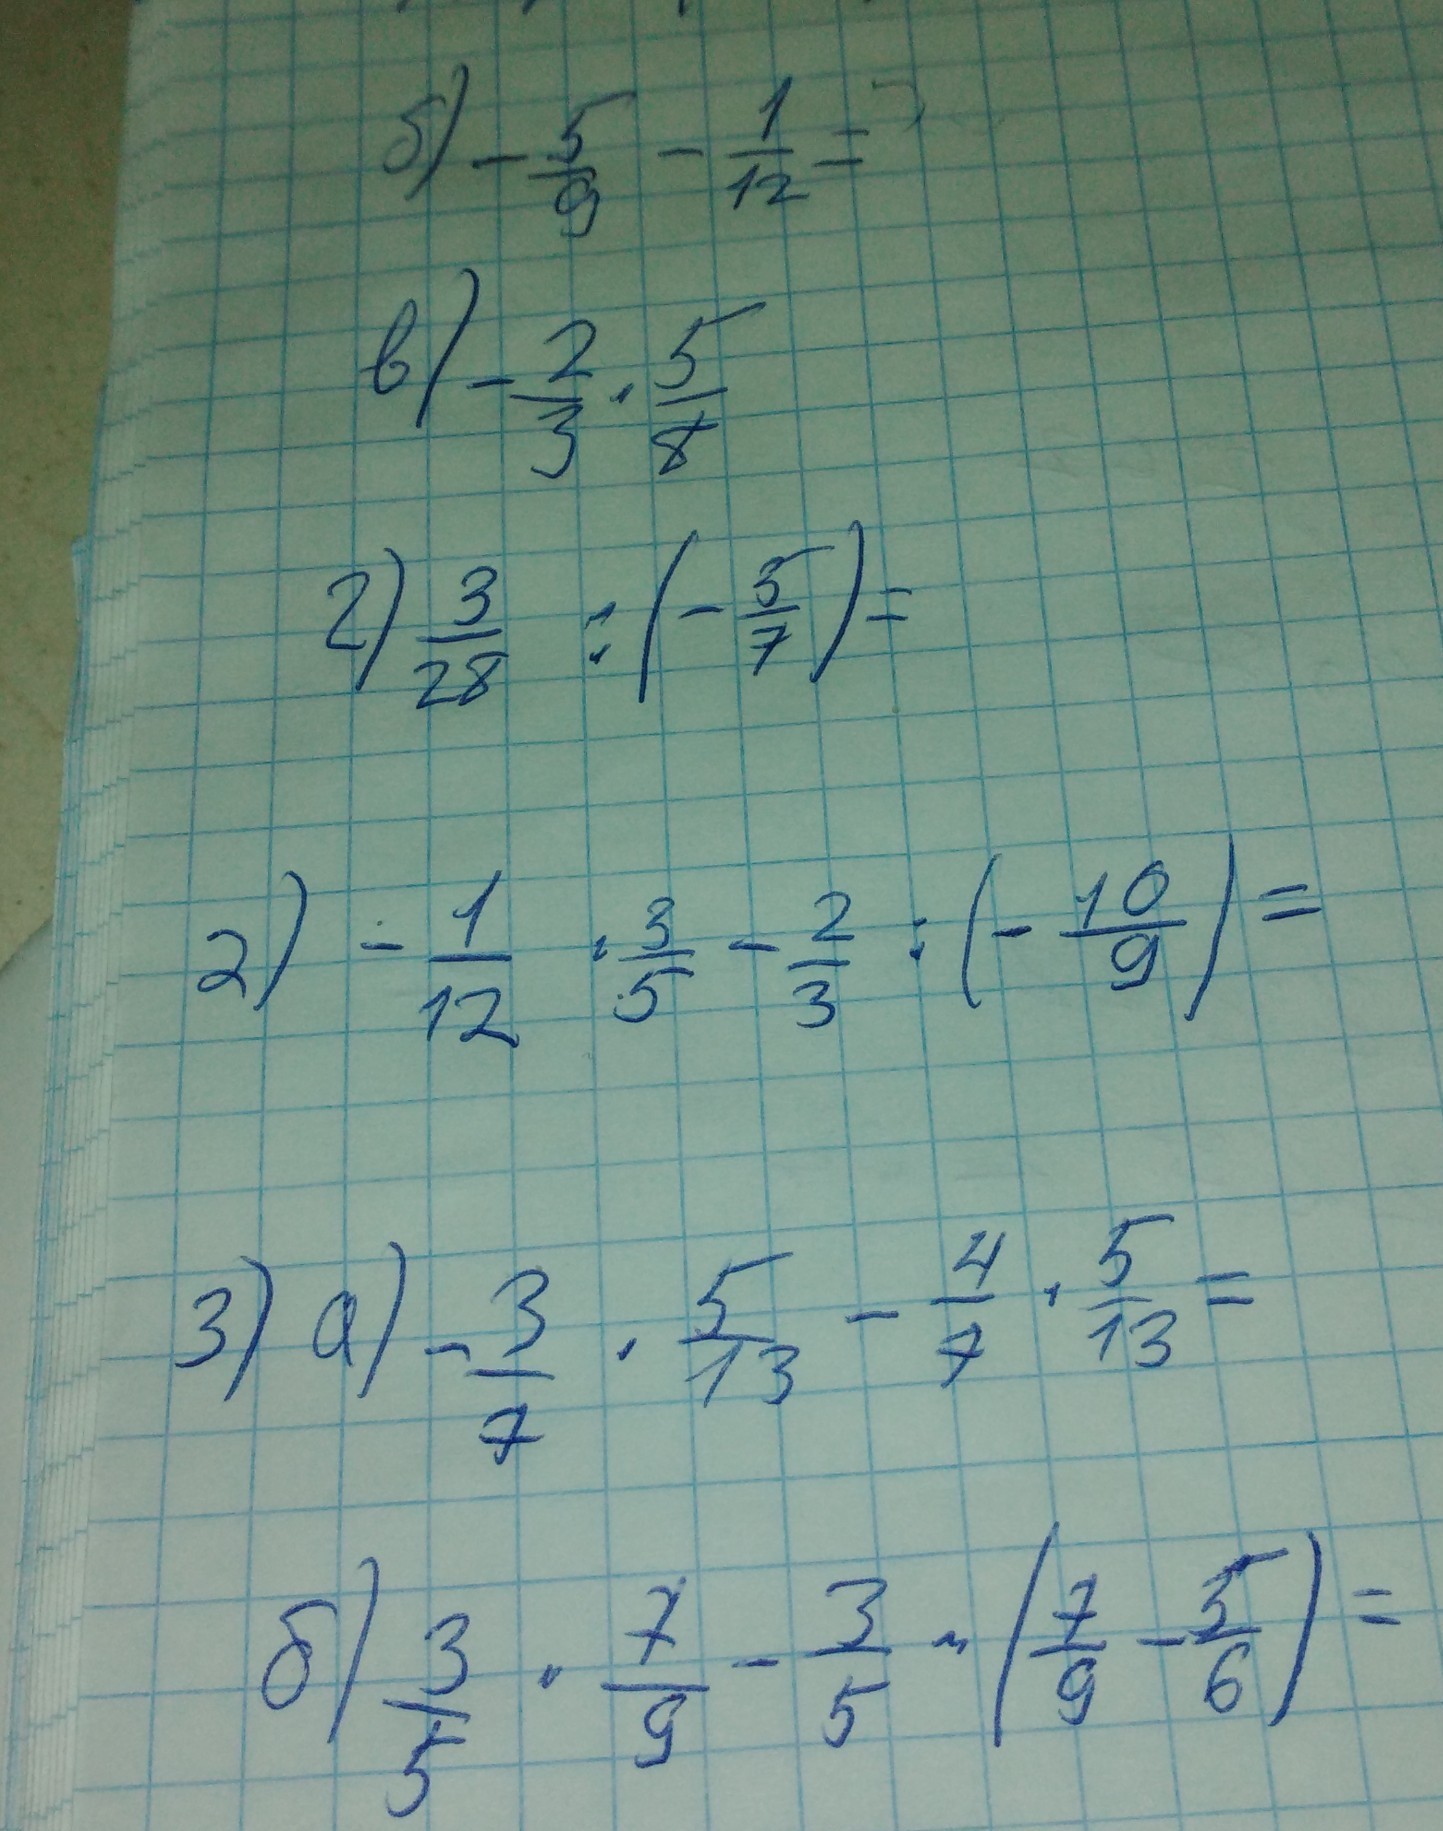 б) -5/9 - 1/12 =
в) -2/3 · 5/8
г) 3/28 : (-5/7) =
2) -1/12 · 3/5 - 2/3 : (-10/9) =
3) а) -3/7 · 5/13 - 4/7 · 5/13 =
б) 3/5 · 7/9 - 3/5 · (7/9 - 5/6) =